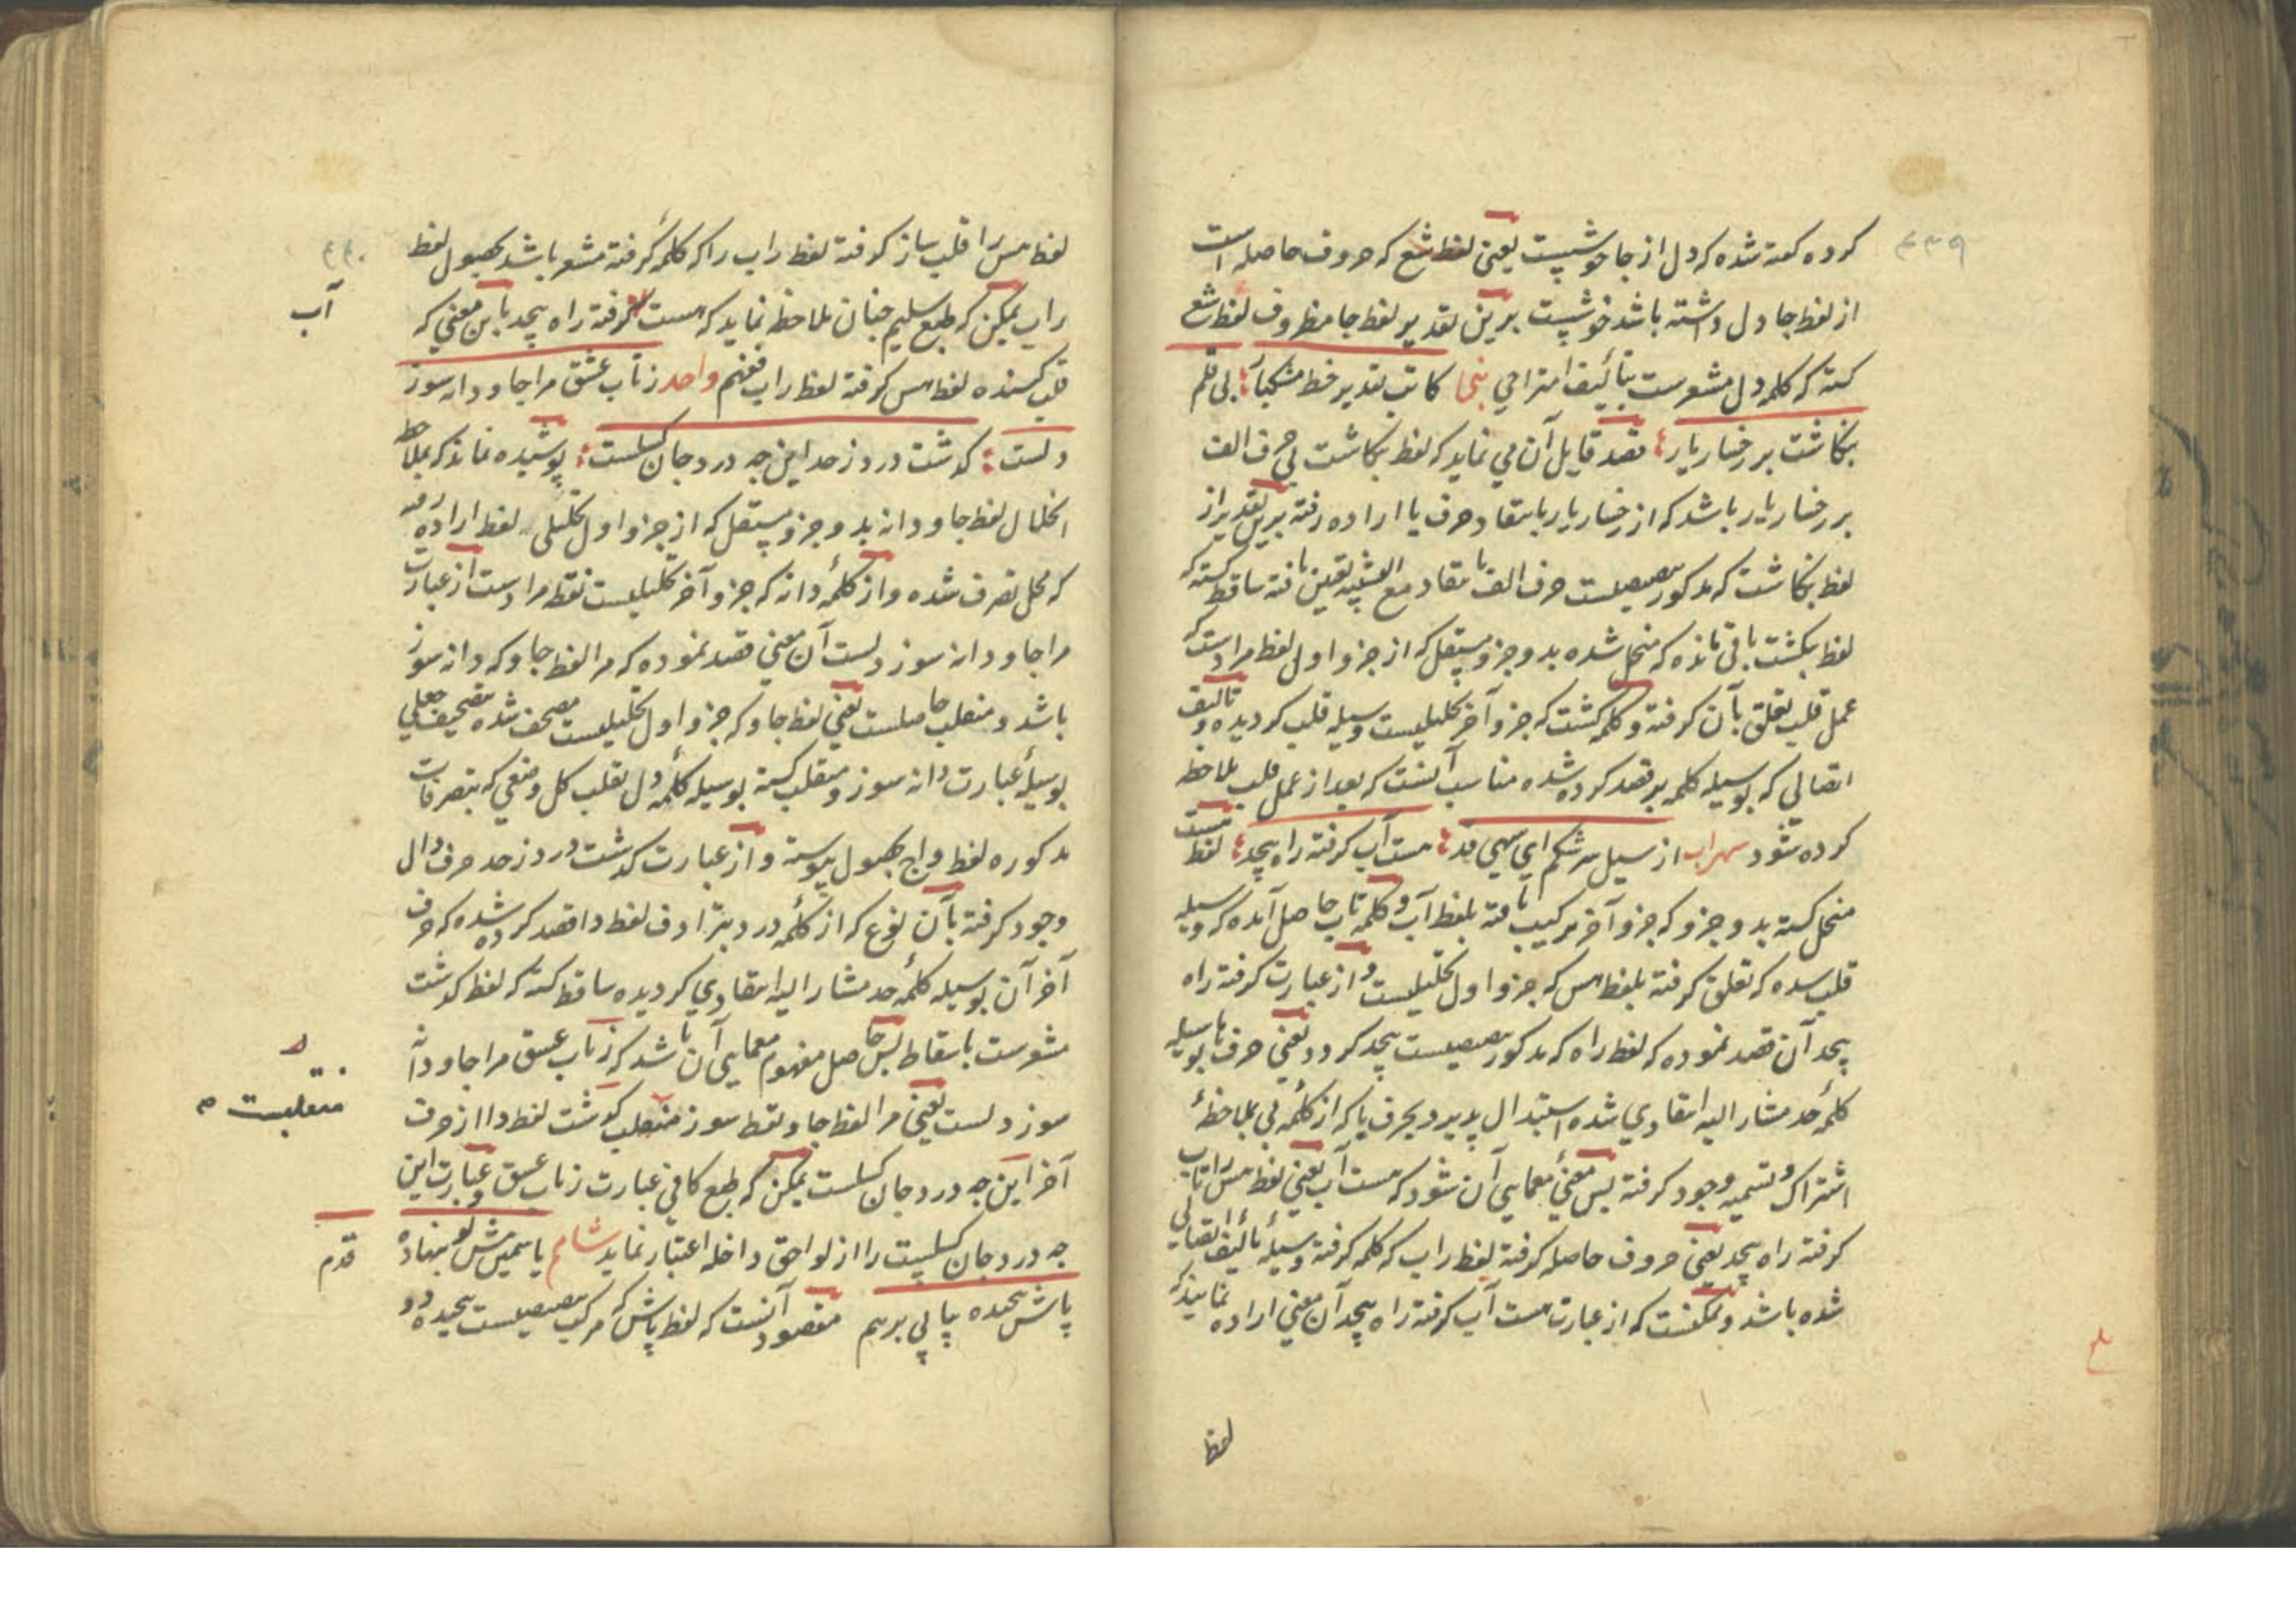 ۴۳۹
کرده کفته شده که دل از جا خوشیست یعنی لفظ شع که حروف حاصله است
از لفظ جا و دل داشته باشد خوشیست برین تقدیر لفظ جا مظروف لفظ شع
کشته که کلمه دل مشعرست بتألیف امتزاجی کاتب تقدیر خط مشکبار بی قلم
بنکاشت بر رخسار یار قصد قایل آن می نماید که لفظ بنکاشت بی حرف الف
بر رخسار یار باشد که از رخسار یار بانتقاد حرف یا اراده رفته برین تقدیر از
لفظ بنکاشت که مذکور تنصیصیست حرف الف بانتقاد مع التشبیه تعین یافته ساقط کشته که
لفظ بنکشت باقی مانده که منحل شده بدو جزو مستقل که از جزو اول لفظ مرادست که
عمل قلب تعلق بآن کرفته و کلمه کشت که جزو آخر تحلیلیست وسیله قلب کردیده و تالیف
اتصالی که بوسیله کلمه بر قصد کرده شده مناسب آنست که بعد از عمل قلب ملاحظه
کرده شود سهراب از سیل سرشکم ای سهی قد مست آب کرفته راه پیچد لفظ مست
منحل کشته بدو جزو که جزو آخر ترکیب یافته بلفظ آب و کلمه تاب حاصل آمده که وسیله
قلب شده که تعلق کرفته بلفظ مس که جزو اول تحلیلیست و از عبارت کرفته راه
پیچد آن قصد نموده که لفظ راه که مذکور تنصیصیست پیچد کردد یعنی حرف ها بوسیله
کلمه حد مشار الیه انتقادی شده استبدال پذیرد بحرف با که از کلمه بی بملاحظه
اشتراک و تسمیه وجود کرفته پس معنی معمایی آن شود که مست آب یعنی لفظ مس را تاب
کرفته راه پیچد یعنی حروف حاصله کرفته لفظ راب که کلمه کرفته وسیله تألیف اتصالی
شده باشد و ممکنست که از عبارت مست آب کرفته راه پیچد آن معنی اراده نمایند که
لفظ
لفظ مس را قلب ساز کرفته لفظ راب را که کلمه کرفته مشعر باشد بحصول لفظ
راب یمکن که طبع سلیم چنان ملاحظه نماید که مست کرفته راه پیچد باین معنی که
آب
قلب کننده لفظ مس کرفته لفظ راب فغنم واحد ز تاب عشق مرا جاودانه سوز
دلست کذشت درد ز حد این چه درد جان کسلست پوشیده نماند که بملاحظه
انحلال لفظ جاودانه بدو جزو مستقل که از جزو اول تحلیلی لفظ اراده رفته
که محل تصرف شده و از کلمه دانه که جزو آخر تحلیلیست نقطه مرادست از عبارت
مرا جاودانه سوز دلست آن معنی قصد نموده که مرا لفظ جاو که دانه سوز
باشد و منقلب حاصلست یعنی لفظ جاو که جزو اول تحلیلیست مصحف شده تصحیف جعلی
بوسیله عبارت دانه سوز و منقلب کشته بوسیله کلمه دل بقلب کل و معنی که بتصرفات
مذکوره لفظ واح بحصول پیوسته و از عبارت کذشت درد ز حد حرف دال
وجود کرفته بآن نوع که از کلمه درد بترادف لفظ دا قصد کرده شده که حرف
آخر آن بوسیله کلمه حد مشار الیه انتقادی کردیده ساقط کشته که لفظ کذشت
مشعرست باسقاط پس حاصل مفهوم معمایی آن باشد که ز تاب عشق مرا جاودانه
سوز دلست یعنی مرا لفظ جاو نقطه سوز منقلب کذشت لفظ دا از حرف
منقلبست
آخر این چه درد جان کسلست یمکن که طبع کافی عبارت ز تاب عشق و عبارت این
چه درد جان کسلیست را از لواحق داخله اعتبار نماید شام یا سمیش تو نهاده
قدم
پاش پیچده پاپی برهم مقصود آنست که لفظ پاش که مرکب تنصیصیست پیچیده دو